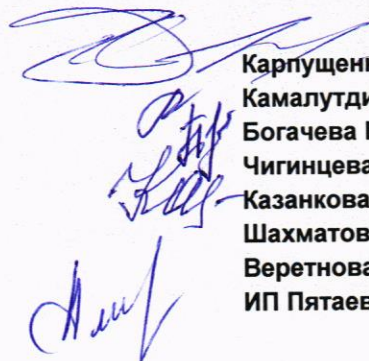 Карпущен
Камалутди
Богачева
Чигинцева
Казанкова
Шахматов
Веретнова
ИП Пятаев